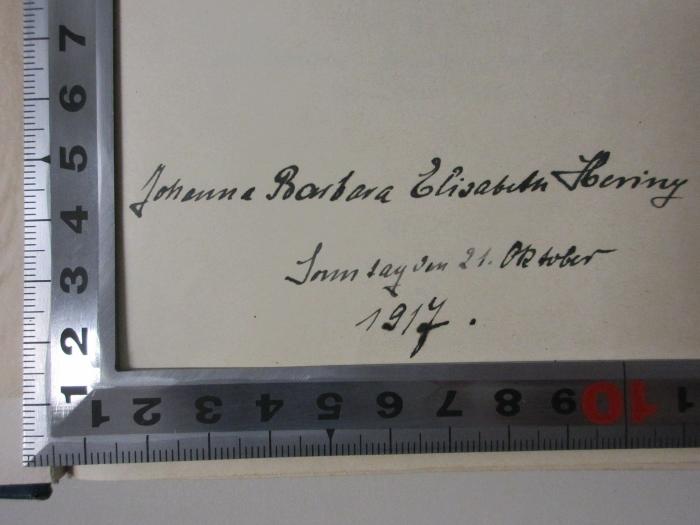 Johanna Barbara Elisabeth Hering
Sonntag den 21. Oktober
1917.
7
6
5
4
3
2
1
1 2 3 4 5 6 7 8 9 10 1